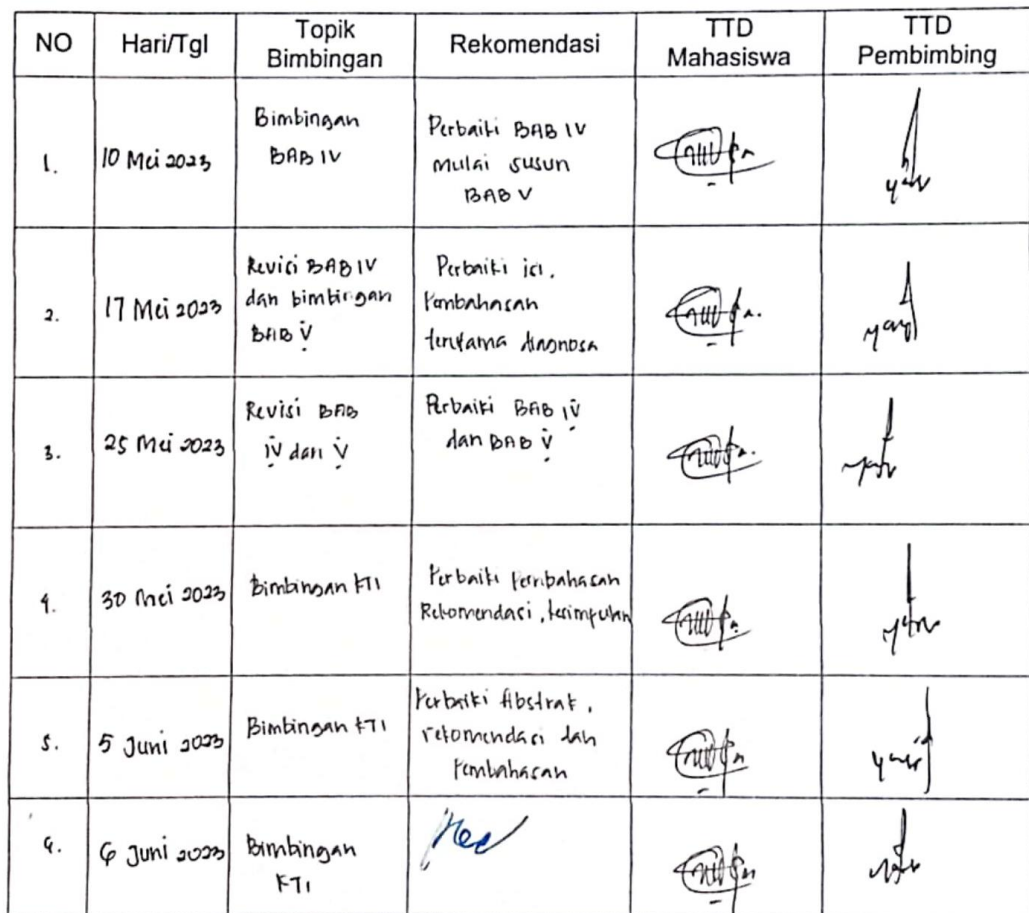 NO Hari/Tgl Topik Bimbingan Rekomendasi TTD Mahasiswa TTD Pembimbing
1. 10 Mei 2023
Bimbingan
BAB IV
Perbaiki BAB IV
mulai susun
BAB V
2. 17 Mei 2023
Revisi BAB IV
dan bimbingan
BAB V
Perbaiki isi,
Pembahasan
terutama diagnosa
3. 25 Mei 2023
Revisi BAB
IV dan V
Perbaiki BAB IV
dan BAB V
4. 30 Mei 2023
Bimbingan KTI
Perbaiki Pembahasan
Rekomendasi, kesimpulan
5. 5 Juni 2023
Bimbingan KTI
Perbaiki Abstrak,
rekomendasi dan
Pembahasan
6. 6 Juni 2023
Bimbingan
KTI